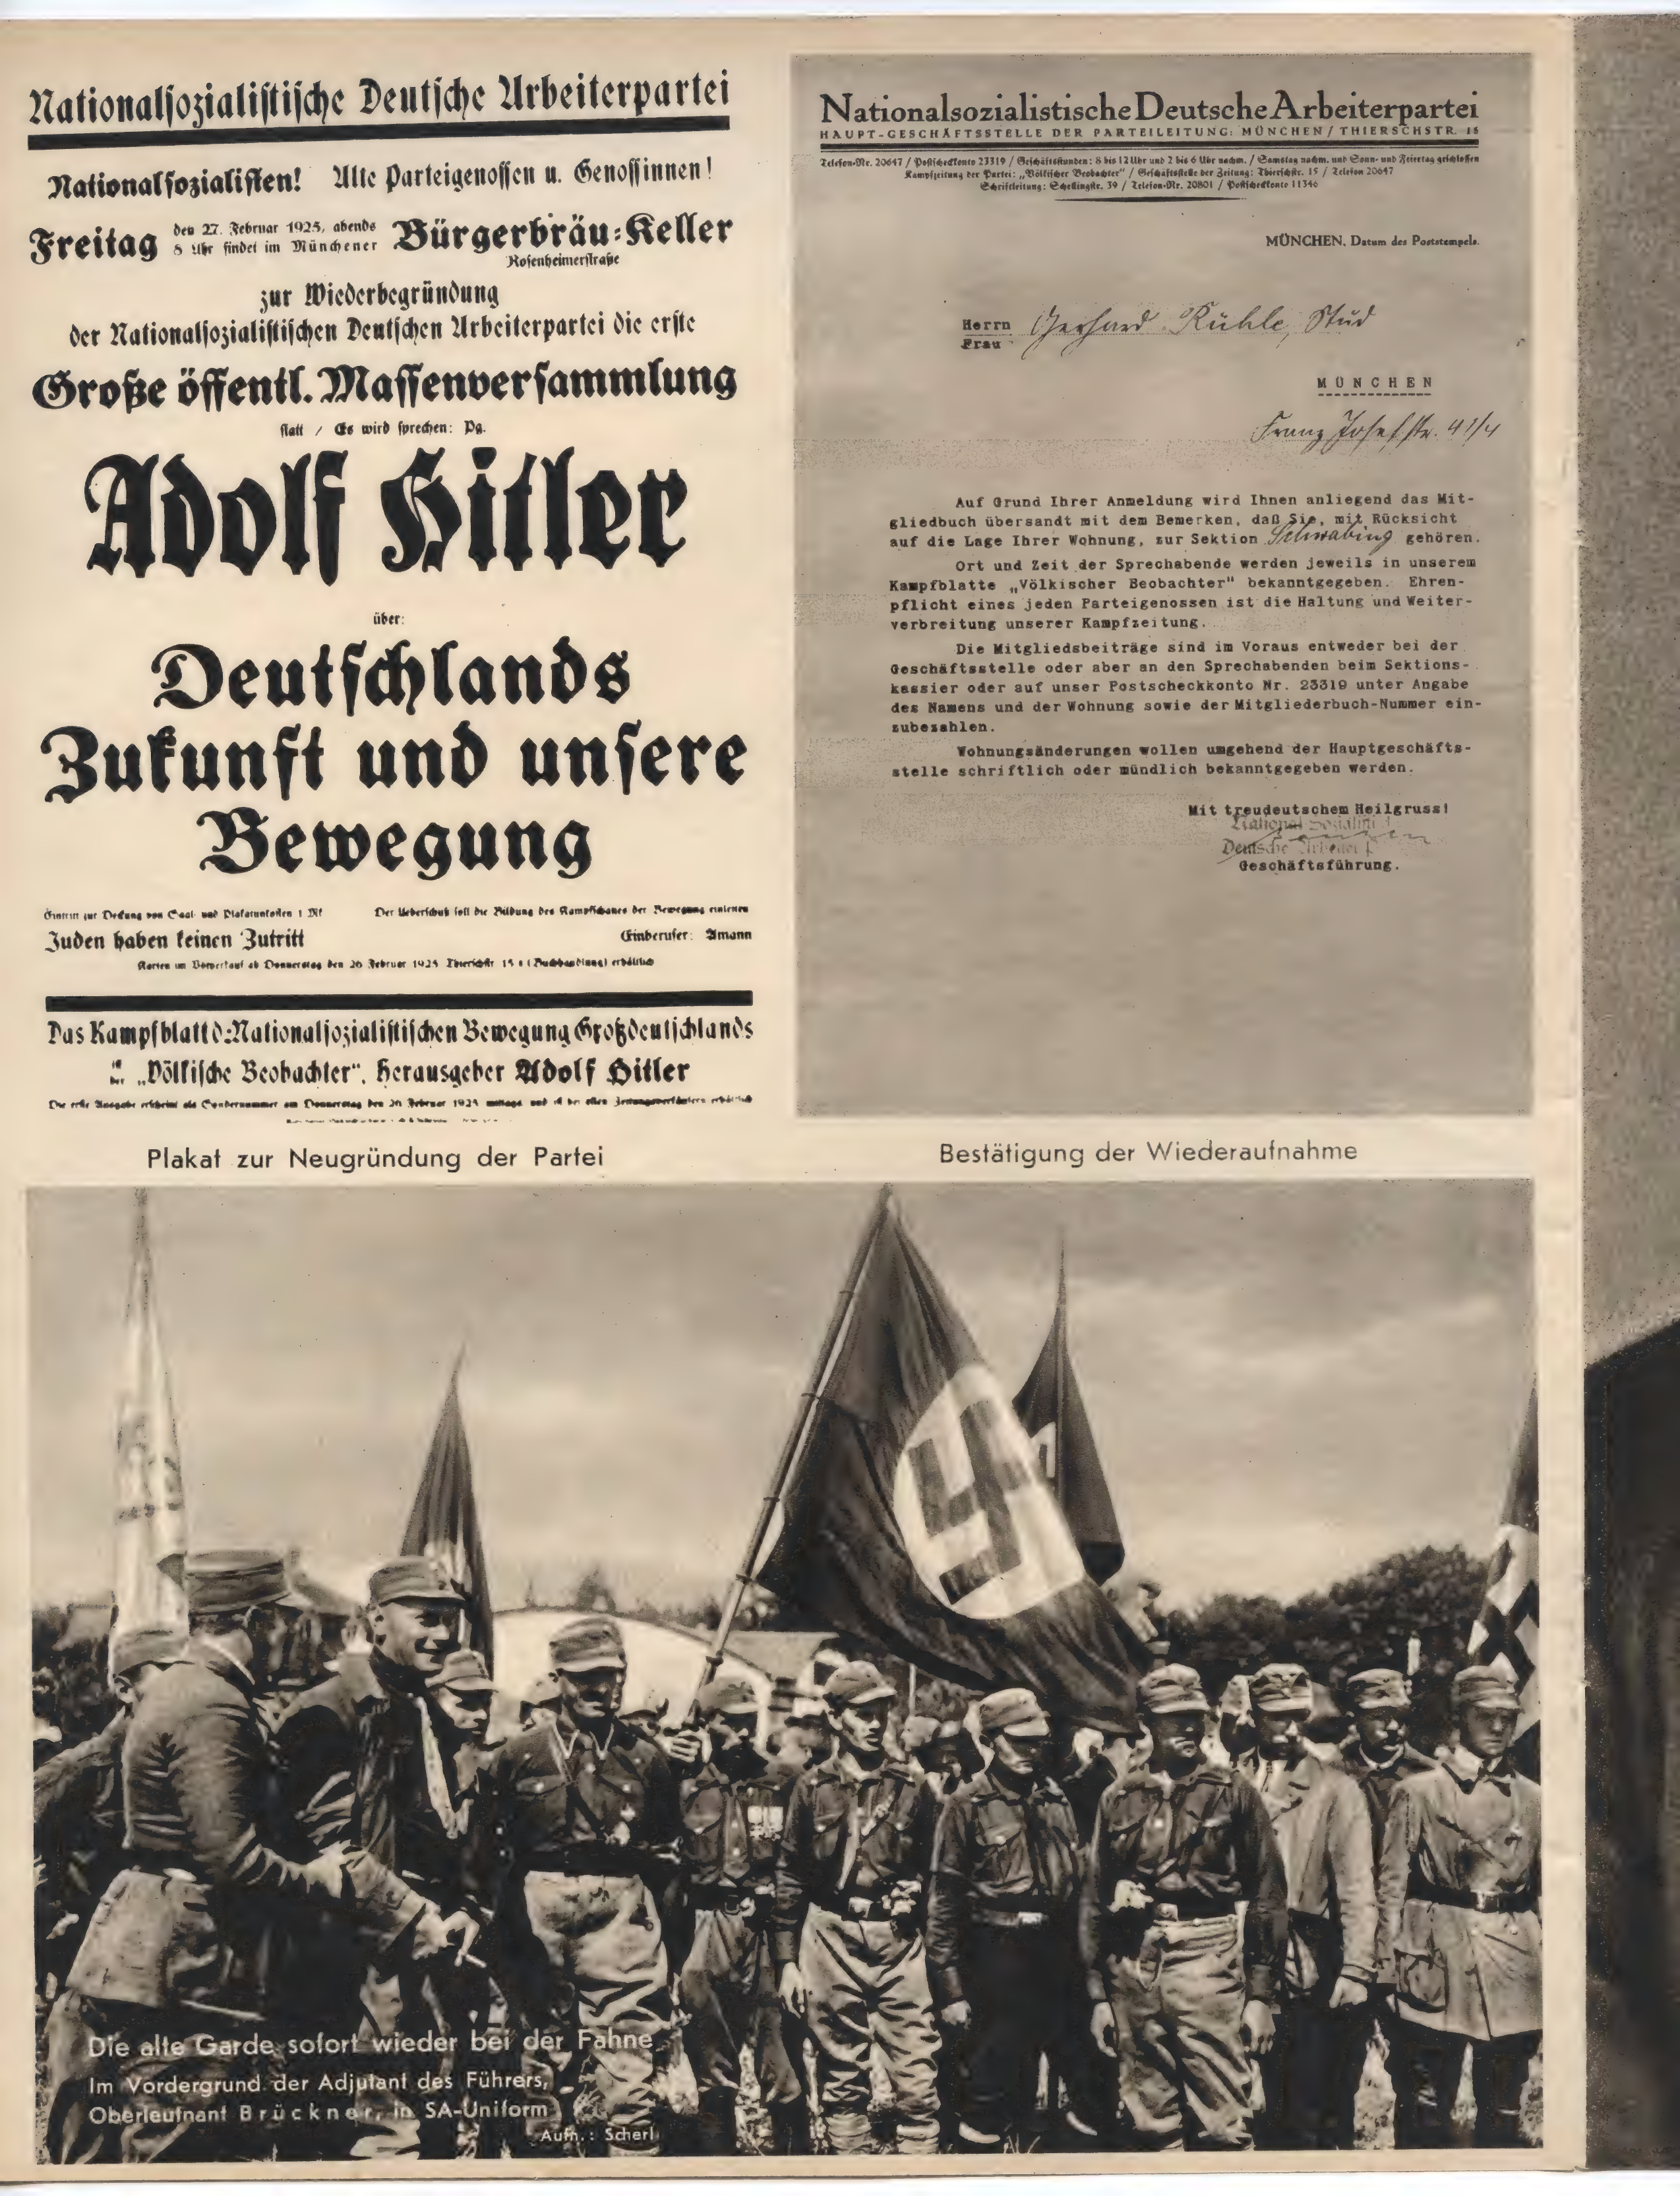 Nationalsozialistische Deutsche Arbeiterpartei
Nationalsozialisten! Alte Parteigenossen u. Genossinnen!
Freitag den 27. Februar 1925, abends 8 Uhr findet im Münchener Bürgerbräu-Keller
Rosenheimerstraße
zur Wiederbegründung
der Nationalsozialistischen Deutschen Arbeiterpartei die erste
Große öffentl. Massenversammlung
statt / Es wird sprechen: Pg.
Adolf Hitler
über:
Deutschlands
Zukunft und unsere
Bewegung
Eintritt zur Deckung von Saal- und Plakatunkosten 1 Mk Der Ueberschuß soll die Bildung des Kampfschatzes der Bewegung einleiten
Juden haben keinen Zutritt Einberufer: Amann
Karten im Vorverkauf ab Donnerstag den 26 Februar 1925 Thierschstr 15 (Buchhandlung) erhältlich
Das Kampfblatt d. Nationalsozialistischen Bewegung Großdeutschlands
„Völkische Beobachter“. Herausgeber Adolf Hitler
Die erste Ausgabe erscheint als Sondernummer am Donnerstag den 26 Februar 1925 mittags und ist bei allen Zeitungsverkäufern erhältlich
Plakat zur Neugründung der Partei
Nationalsozialistische Deutsche Arbeiterpartei
HAUPT-GESCHÄFTSSTELLE DER PARTEILEITUNG: MÜNCHEN / THIERSCHSTR. 15
Telefon-Nr. 20647 / Postscheckkonto 23319 / Geschäftsstunden: 8 bis 12 Uhr und 2 bis 6 Uhr nachm. / Samstag nachm. und Sonn- und Feiertag geschlossen
Kampfzeitung der Partei: „Völkischer Beobachter“ / Geschäftsstelle der Zeitung: Thierschstr. 15 / Telefon 20647
Schriftleitung: Schellingstr. 39 / Telefon-Nr. 20801 / Postscheckkonto 11346
MÜNCHEN, Datum des Poststempels.
Herrn Gerhard Rühle, Stud
Frau
MÜNCHEN
Franz Josefstr. 41/4
Auf Grund Ihrer Anmeldung wird Ihnen anliegend das Mit-
gliedbuch übersandt mit dem Bemerken, daß Sie, mit Rücksicht
auf die Lage Ihrer Wohnung, zur Sektion Schwabing gehören.
Ort und Zeit der Sprechabende werden jeweils in unserem
Kampfblatte „Völkischer Beobachter“ bekanntgegeben. Ehren-
pflicht eines jeden Parteigenossen ist die Haltung und Weiter-
verbreitung unserer Kampfzeitung.
Die Mitgliedsbeiträge sind im Voraus entweder bei der
Geschäftsstelle oder aber an den Sprechabenden beim Sektions-
kassier oder auf unser Postscheckkonto Nr. 23319 unter Angabe
des Namens und der Wohnung sowie der Mitgliederbuch-Nummer ein-
zubezahlen.
Wohnungsänderungen wollen umgehend der Hauptgeschäfts-
stelle schriftlich oder mündlich bekanntgegeben werden.
Mit treudeutschem Heilgruss!
National Sozialist
Deutsche Arbeiter P
Geschäftsführung.
Bestätigung der Wiederaufnahme
Die alte Garde sofort wieder bei der Fahne
Im Vordergrund der Adjutant des Führers,
Oberleutnant Brückner, in SA-Uniform
Aufn.: Scherl